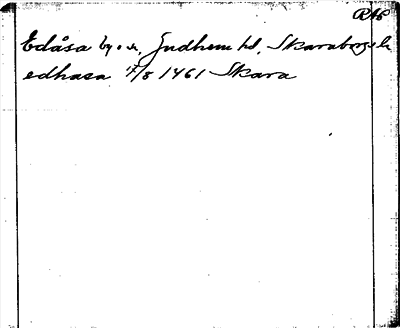 RAP
Edåsa by o sn, Gudhems hd, Skaraborgs l.
edhasa 17/8 1461 Skara